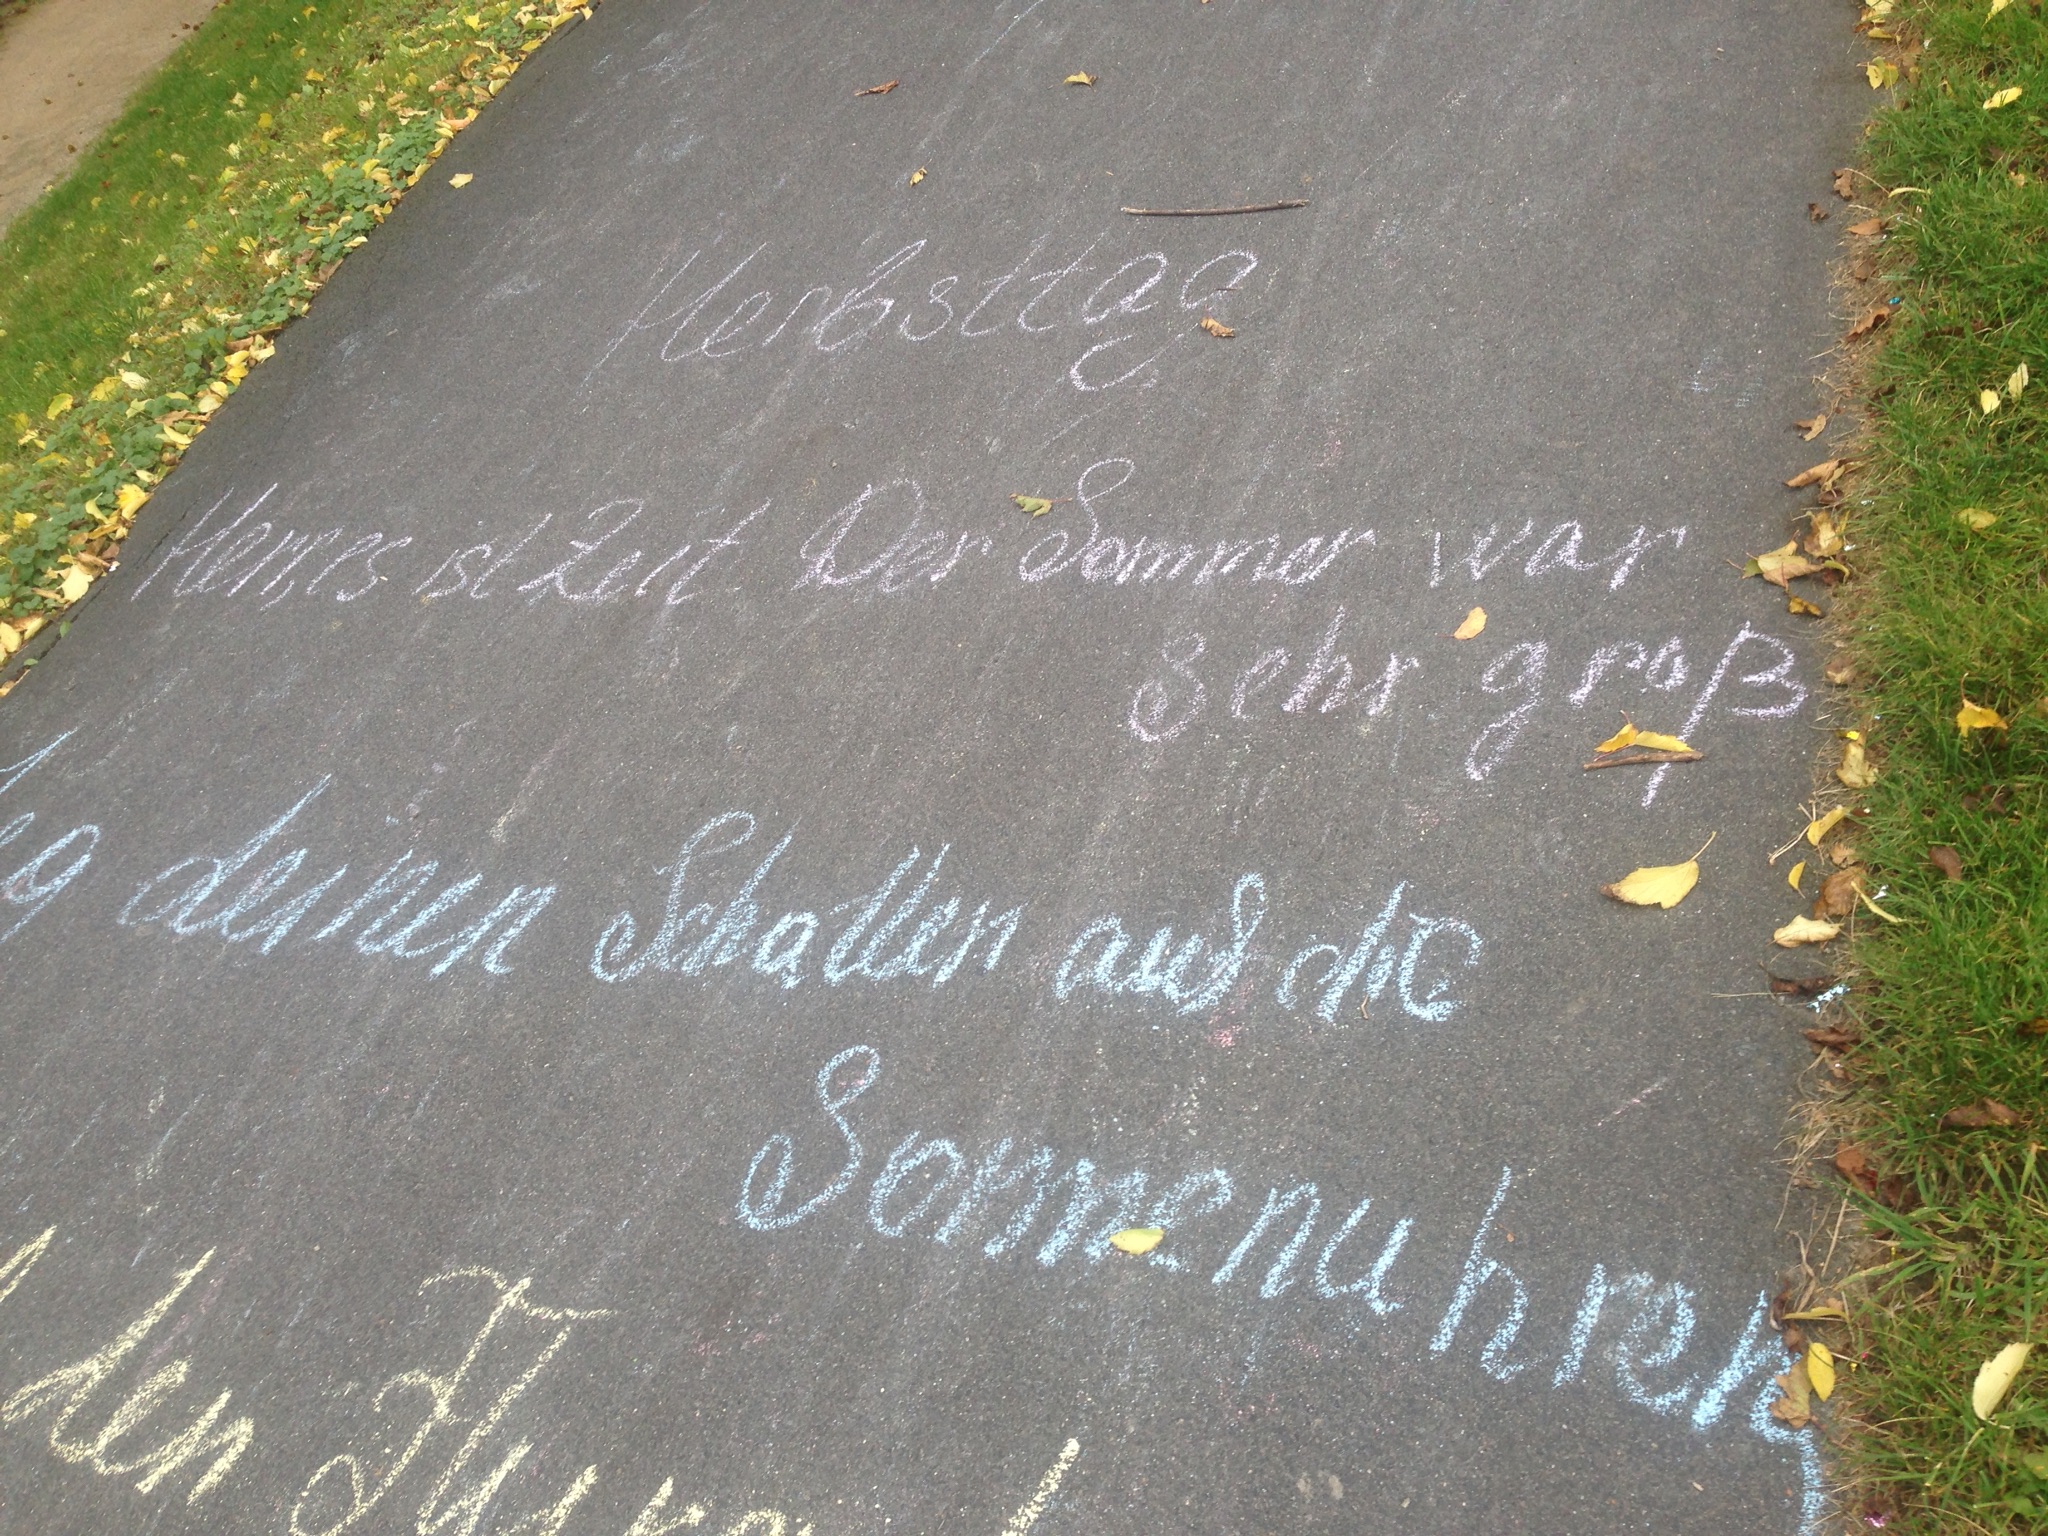 Herbsttag
Herr, es ist Zeit Der Sommer war
sehr groß
leg deinen Schatten auf die
Sonnenuhren,
den Fluren l